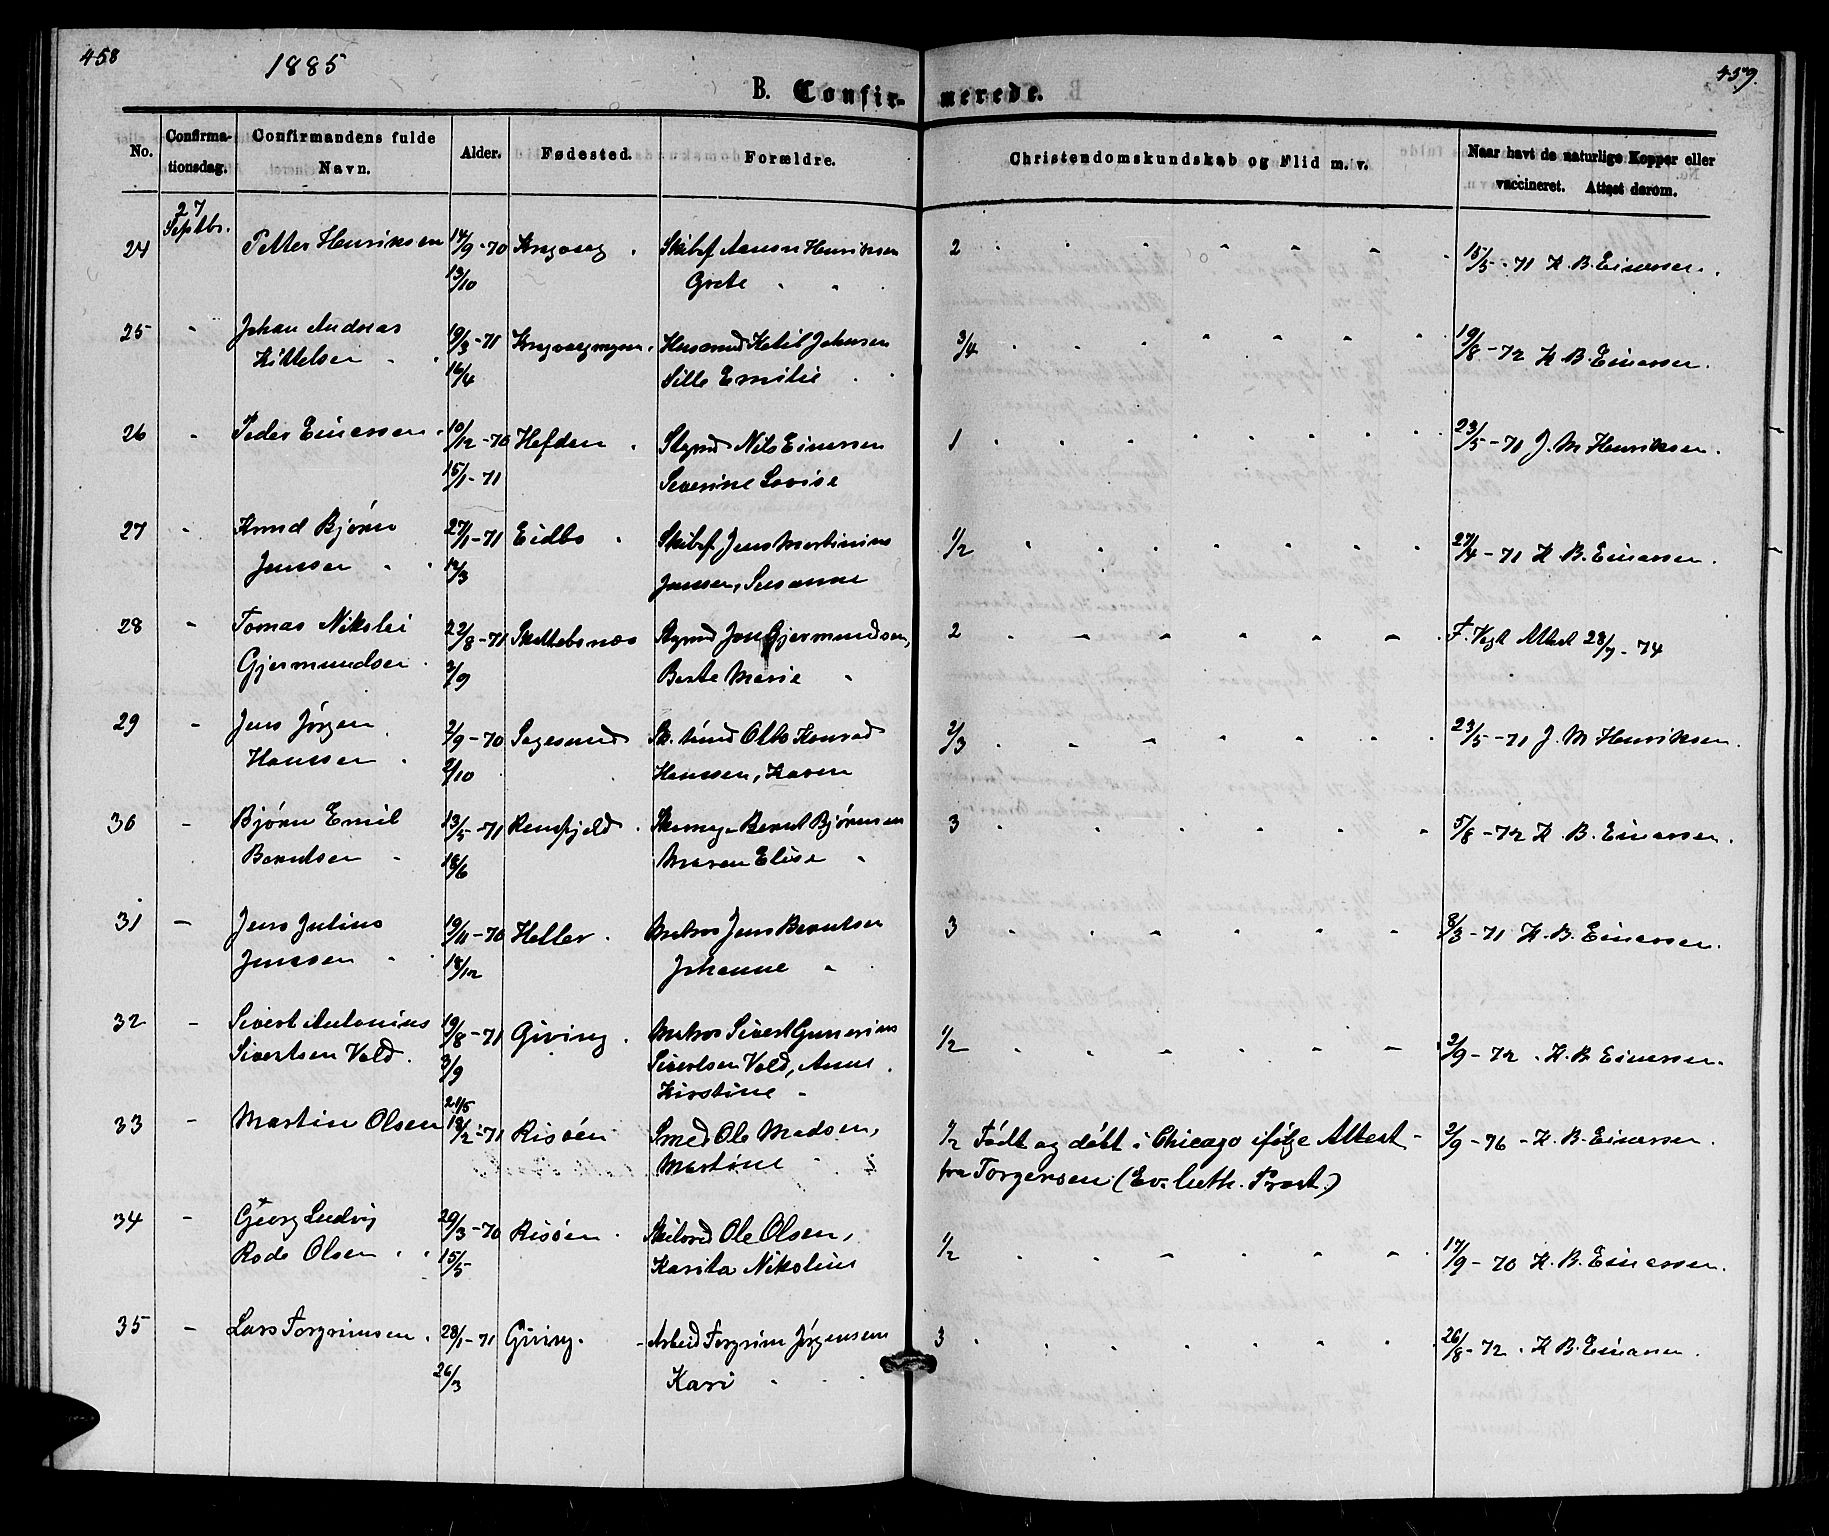 458
1885
B. Confir-
merede.
459.
No.
Confirma-
tionsdag.
Confirmandens fulde
Navn.
Alder.
Fødested.
Forældre.
Christendomskundskab og Flid m. v.
Naar havt de naturlige Kopper eller
vaccineret. Attest darom.
27
Septbr.
24 Petter Henriksen 14/9 - 70 Skibsf Henriksen 2 15/5 - 71 K. B. Einersen.
13/10 Grete
25 - Johan Andreas 19/3 - 71 Husmd Ketil Johnsen 3/4 19/8 - 72 K B. Einersen.
Kittelsen 16/4 Sille Emilie
26 - Peder Einersen 10/12 - 70 Hefden Nils Einersen 1 23/5 - 71 J. M Henriksen.
15/1 - 71 Severine Lovise
27 - Knud Bjørn 27/1 - 71 Eidbo Skibsf, Jens Martinius 1/2 27/4 - 71 K B. Einersen.
Jenssen 12/3 Jenssen, Susanne
28 - Tomas Nikolai 22/8 - 71 Skottebsnæs Jens Gjermundsen, 2 F. Vogt Attest 28/7 - 74
Gjermundsen 3/9 Berte Marie
29 - Jens Jørgen 2/9 - 70 Sagesund Otto Konrad 2/3 23/5 - 71 J. M Henriksen.
Hanssen 2/10 Hanssen, Karen
30 - Bjørn Emil 13/5 - 71 Renstjeld Bernt Bjørnsen 3 5/8 - 72 K B. Einersen.
Berntsen 18/6 Maren Elise
31 - Jens Julius 19/11 - 70 Heller Matros Jens Berntsen 3 8/3 - 71 K. B. Einersen.
Jenssen 18/12 Johanne
32 - Sivert Antonius 19/8 - 71 Giving Matros Sivert Gunerius 1/2 2/9 - 72 K. B Einersen.
Sivertsen Vold. 3/9 Sivertsen Vold, Anne
Kirstine
33 - Martin Olsen 18/2 - 71 Risøen Smed Ole Madsen, 1/2 Født og døbt i Chicago ifølge Attest 2/9 - 76 - K. B. Einersen.
21/5 Martine fra Torgersen (Ev. luth. Præst.)
34 - Georg Ludvig 20/3 - 70 Risøen Ole Olsen, 1/2 17/9 - 70 K. B. Einersen.
Rode Olsen 15/5 Karita Nikoline
35 - Lars Torgrimsen 28/1 - 71 Giving. Arbeid Torgrim Jørgensen 3 26/8 - 72 K B. Einersen.
26/3 Kari